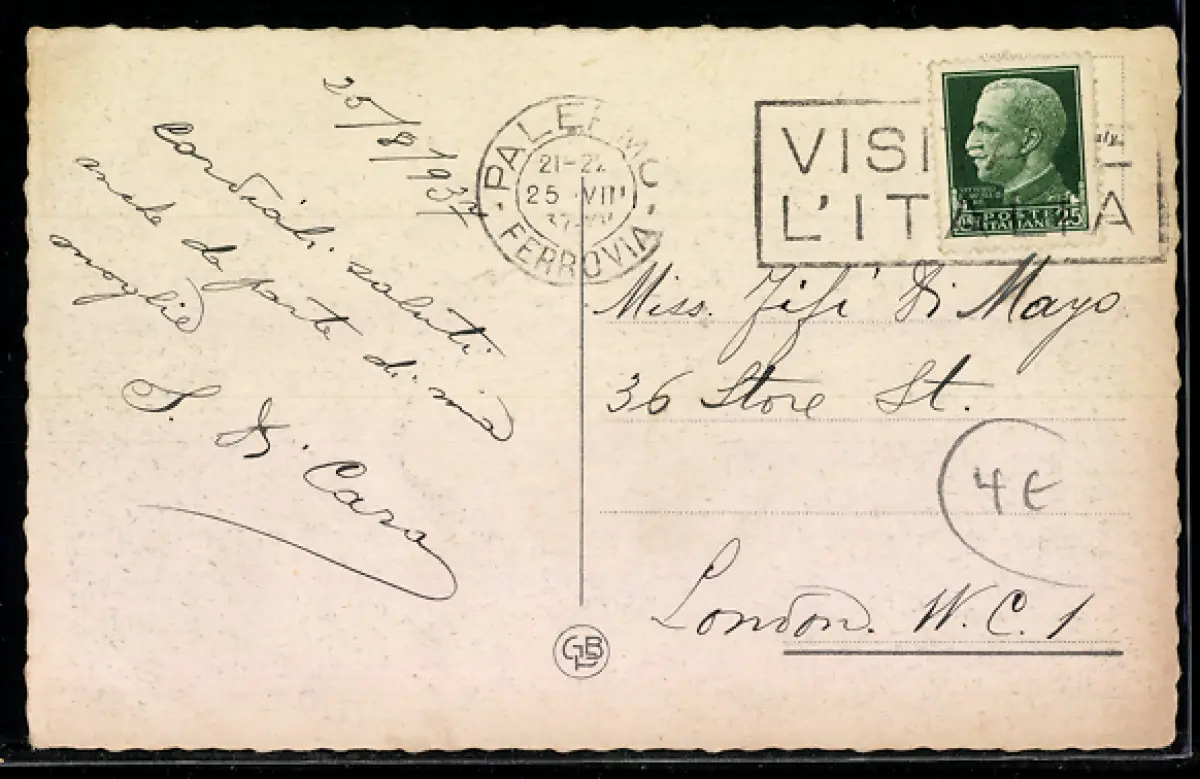 25/8/1937
Cordiali saluti
anche da parte di mia
moglie
S. Di Caro
PALERMO
21-22
25 VIII
FERROVIA
VISI
L'IT A
POSTE
ITALIANE
25
Miss. Fifi Di Mayo
36 Store St.
4 E
London. W.C.1
GBL